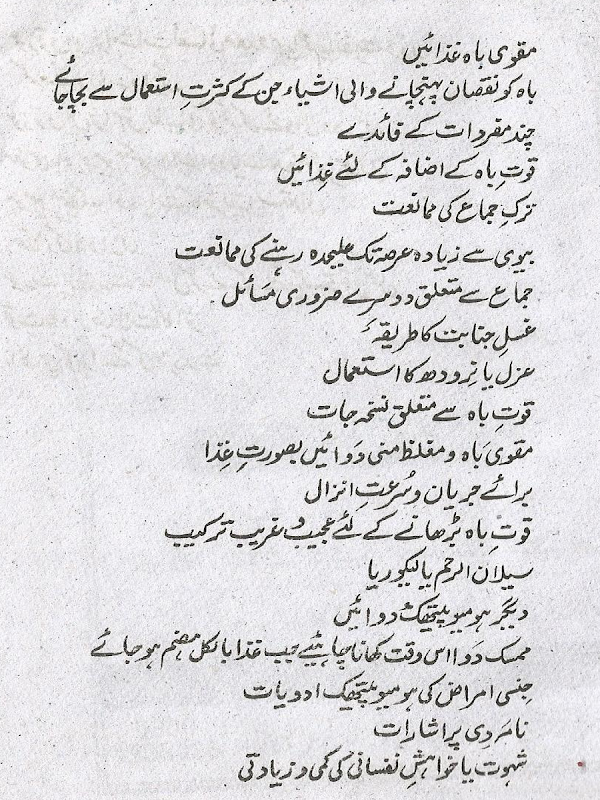 مقوی باہ غذائیں
باہ کو نقصان پہنچانے والی اشیاء جن کے کثرتِ استعمال سے بچا جائے
چند مفردات کے فائدے
قوتِ باہ کے اضافہ کے لئے غذائیں
ترکِ جماع کی ممانعت
بیوی سے زیادہ عرصہ تک علیحدہ رہنے کی ممانعت
جماع سے متعلق دوسرے ضروری مَسائل
غسلِ جنابت کا طریقہ
عزل یا نِرودھ کا استعمال
قوتِ باہ سے متعلق نسخہ جات
مقوی باہ و مغلظ منی دَوائیں بصورتِ غِذا
برائے جریان و سُرعتِ انزال
قوتِ باہ بڑھانے کے لئے عجیب و غریب ترکیب
سیلان الرحم یا لیکوریا
دیگر ہومیوپیتھک دوائیں
ممسک دَوا اس وقت کھانا چاہئیے جب غذا بالکل ہضم ہو جائے
جنسی امراض کی ہومیوپیتھک ادویات
نامَردِی پر اشارات
شہوت یا خواہشِ نفسانی کی کمی و زیادتی